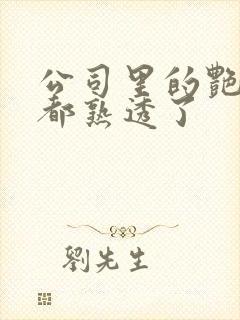 公司里的艷
都熟透了
劉先生